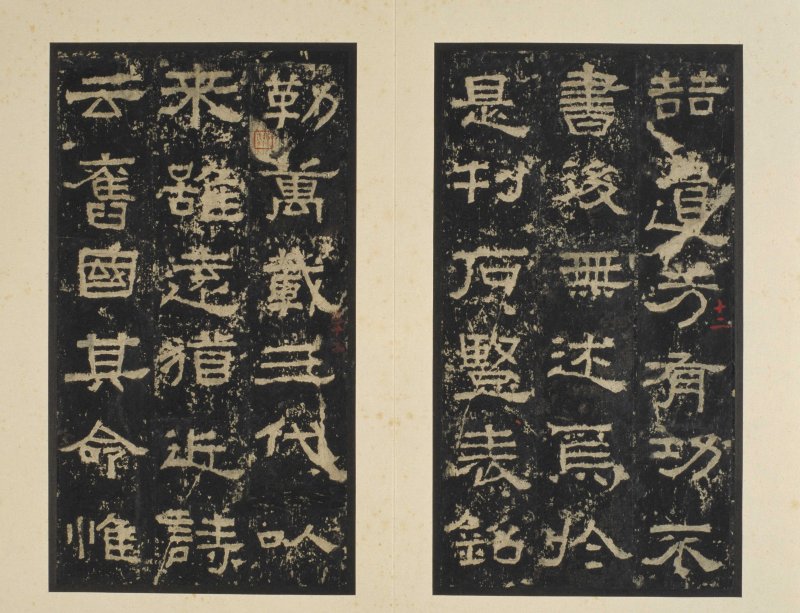 喆遺芳有功不
書後無述焉於
是刊石豎表銘
勒萬載三代以
來雖遠猶近詩
云舊國其命惟
十二